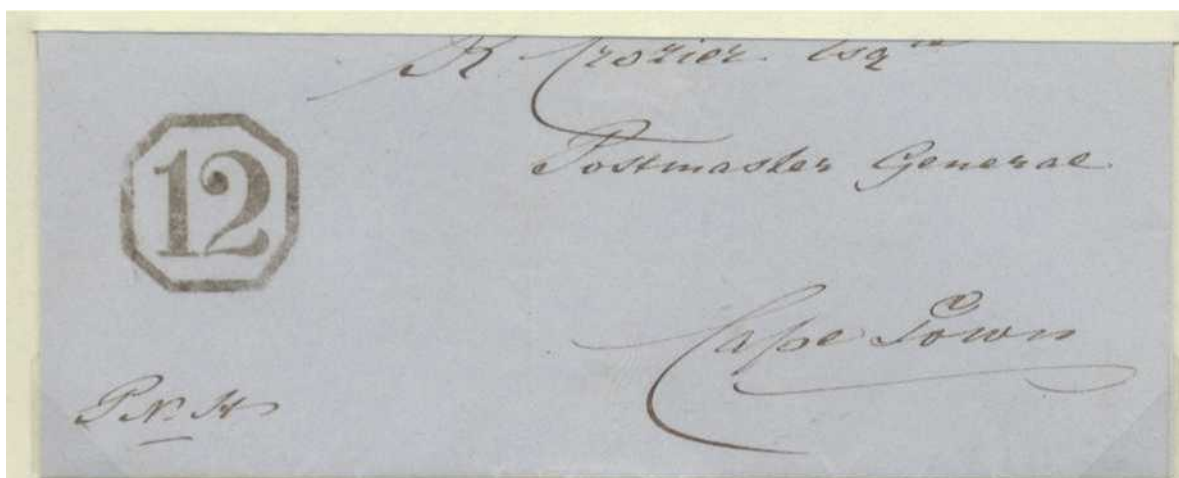 R Crozier Esqre
12
Postmaster General
Cape Town